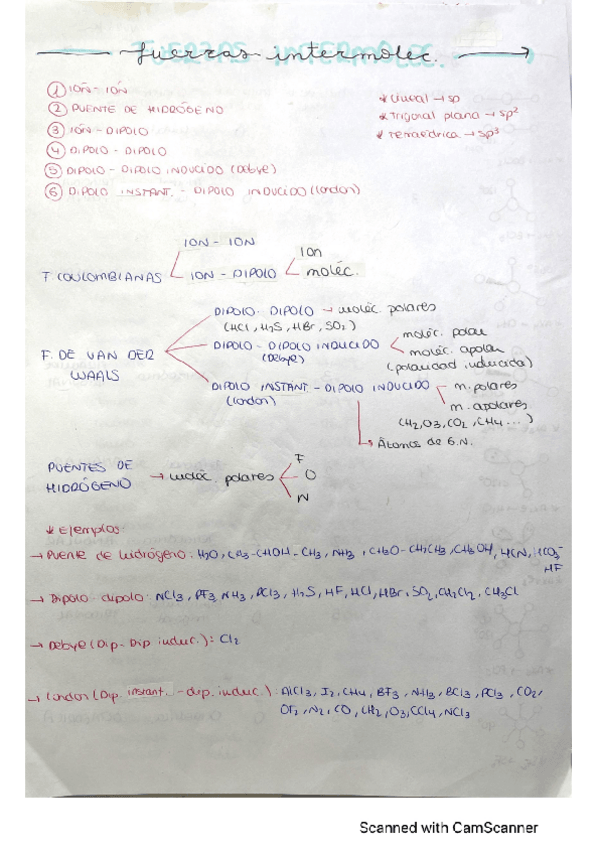 fuerzas intermolec.
① IÓN - IÓN
② PUENTE DE HIDRÓGENO
③ IÓN - DIPOLO
④ DIPOLO - DIPOLO
⑤ DIPOLO - DIPOLO INDUCIDO (Debye)
⑥ DIPOLO INSTANT. - DIPOLO INDUCIDO (London)
* Lineal → sp
* Trigonal plana → sp²
* Tetraédrica → sp³
F. COULOMBIANAS
ION - ION
ION - DIPOLO
Ion
moléc.
F. DE VAN DER WAALS
DIPOLO - DIPOLO → moléc polares
(HCl, H₂S, HBr, SO₂)
DIPOLO - DIPOLO INDUCIDO
(Debye)
moléc. polar
moléc. apolar
(polaridad inducida)
DIPOLO INSTANT - DIPOLO INDUCIDO
(London)
m. polares
m. apolares
(CH₂, O₃, CO₂, CH₄ ...)
Átomos de G.N.
PUENTES DE HIDRÓGENO → moléc. polares
F
O
N
* Ejemplos:
→ Puente de hidrógeno: H₂O, CH₃-CHOH-CH₃, NH₃, CH₃O-CH₂CH₃, CH₃OH, HCN, HCO₃⁻
HF
→ Dipolo - dipolo: NCl₃, PF₃, NH₃, PCl₃, H₂S, HF, HCl, HBr, SO₂, CH₂Cl₂, CH₃Cl
→ Debye (Dip - Dip induc.): Cl₂
→ London (Dip. instant. - dip. induc.): AlCl₃, I₂, CH₄, BF₃, NH₃, BCl₃, PCl₃, CO₂,
OF₂, N₂, CO, CH₂, O₃, CCl₄, NCl₃
Scanned with CamScanner